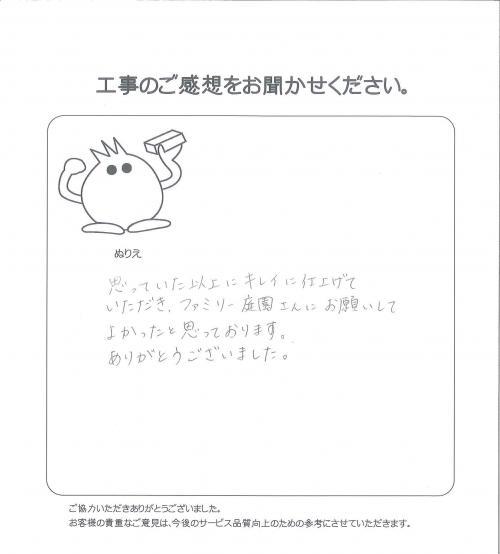 工事のご感想をお聞かせください。
ぬりえ
思っていた以上にキレイに仕上げて
いただき、ファミリー庭園さんにお願いして
よかったと思っております。
ありがとうございました。
ご協力いただきありがとうございました。
お客様の貴重なご意見は、今後のサービス品質向上のための参考にさせていただきます。